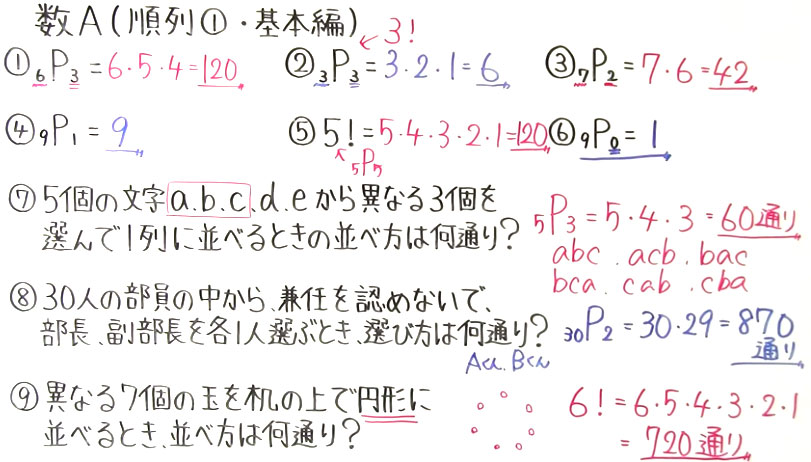 数A(順列①・基本編)
① ₆P₃ = 6・5・4 = 120 ② ₃P₃ = 3・2・1 = 6 ← 3! ③ ₇P₂ = 7・6 = 42
④ ₉P₁ = 9 ⑤ 5! = 5・4・3・2・1 = 120 ⑥ ₉P₀ = 1
₅P₅
⑦ 5個の文字a.b.c.d.eから異なる3個を
選んで1列に並べるときの並べ方は何通り?
₅P₃ = 5・4・3 = 60通り
abc . acb . bac
bca . cab . cba
⑧ 30人の部員の中から、兼任を認めないで、
部長、副部長を各1人選ぶとき、選び方は何通り?
₃₀P₂ = 30・29 = 870
通り
Aくん. Bくん
⑨ 異なる7個の玉を机の上で円形に
並べるとき、並べ方は何通り?
6! = 6・5・4・3・2・1
= 720通り